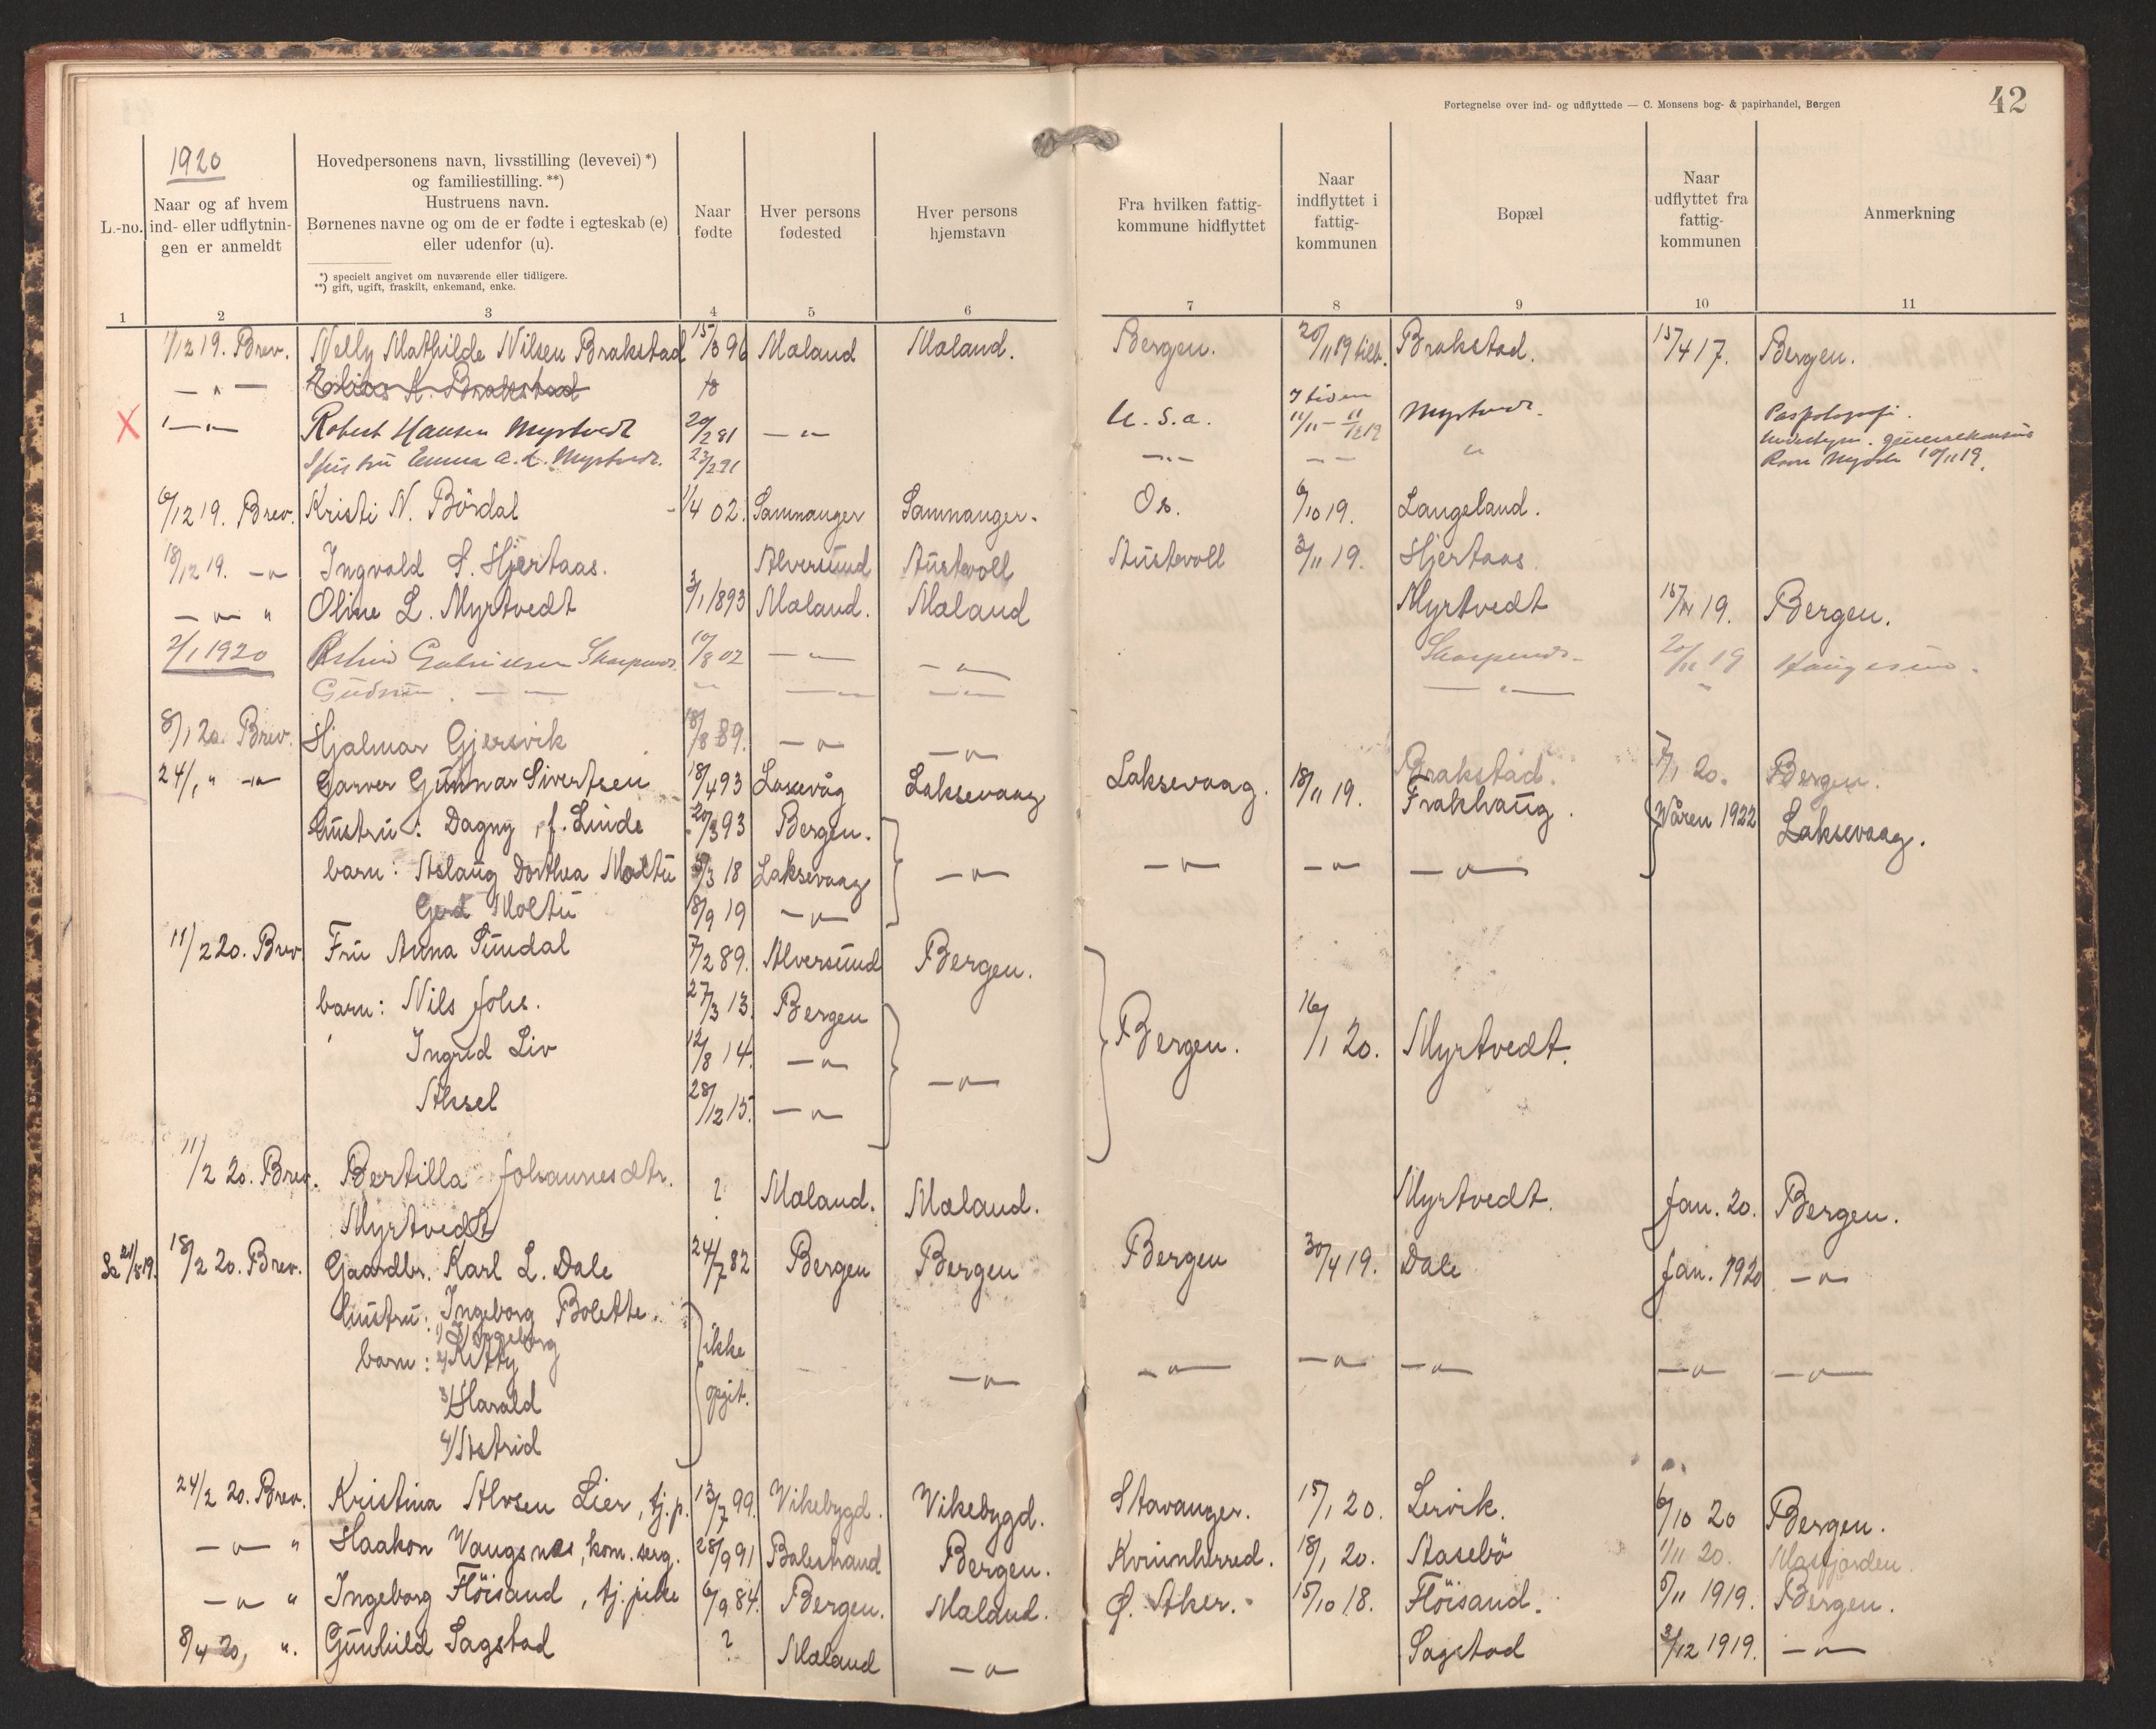 Fortegnelse over ind- og udflyttede — C. Monsens bog- & papirhandel, Bergen
42
1920
L.-no.
Naar og af hvem
ind- eller udflytnin-
gen er anmeldt
Hovedpersonens navn, livsstilling (levevei) *)
og familiestilling. **)
Hustruens navn.
Børnenes navne og om de er fødte i egteskab (e)
eller udenfor (u).
*) specielt angivet om nuværende eller tidligere.
**) gift, ugift, fraskilt, enkemand, enke.
Naar
fødte
Hver persons
fødested
Hver persons
hjemstavn
Fra hvilken fattig-
kommune hidflyttet
Naar
indflyttet i
fattig-
kommunen
Bopæl
Naar
udflyttet fra
fattig-
kommunen
Anmerkning
1 2 3 4 5 6 7 8 9 10 11
1/12 19. Brev. Nelly Mathilde Nilsen Brakstad 15/3 96 Mæland Mæland. Bergen. 20/11 19 tilb. Brakstad. 15/4 17. Bergen.
— " — Brakstad
X — " — Robert Hansen Myrtvedt 20/2 81 — " — U.S.a. Myrtvedt.
Hustru Emma A. Myrtvedt. — " — — " — "
6/12 19. Brev. Kristi N. Bördal 1/4 02. Samnanger Samnanger. Os. 6/10 19. Langeland.
18/12 19. — " — Ingvald S. Hjertaas. Alversund Austevoll Austevoll 3/11 19. Hjertaas.
— " — " Oline L. Myrtvedt 3/1 1893 Mæland. Mæland Myrtvedt Bergen.
2/1 1920 Astrid Gabrielsen 10/8 02 — " — — " — Haugesund.
Gudrun — " — " — " — — " — — " —
8/1 20. Brev. Hjalmar Gjersvik 18/8 89. — " — — " — Brakstad. 7/1 20. Bergen.
24/1 " — " — Garver Gunnar Sivertsen 18/4 93 Laxevåg Laksevaag Laksevaag. 18/11 19. Frakhaug. Våren 1922 Laksevaag.
hustru: Dagny, f. Linde 20/3 93 Bergen. — " — — " — — " — — " —
barn: Aslaug Dorthea Moltu 3 18 Laksevaag
Gerd Moltu 8/9 19 — " —
11/2 20. Brev Fru Anna Sundal 7/2 89. Alversund Bergen. Bergen. 16/1 20. Myrtvedt.
barn: Nils Johs. 27/3 13. Bergen — " —
Ingrid Liv 12/8 14. — " —
Aksel 28/12 15. — " —
11/2 20. Brev. Bertilla Johannesdtr. ? Mæland. Mæland. Myrtvedt. Jan. 20. Bergen.
Myrtvedt
18/2 20. Brev. Gaardbr. Karl L. Dale 24/7 82 Bergen Bergen Bergen 30/4 19. Dale Jan. 1920 — " —
hustru: Ingeborg Bolette. ikke opgit. — " — — " — — " — — " — — " — — " —
1) Ingeborg
barn: 2) Kitty
3) Harald
4) Astrid
24/2 20. Brev. Kristina Alvsen Lier, tj.p. 13/7 99. Vikebygd. Vikebygd. Stavanger. 15/1 20. Lervik. 6/10 20 Bergen.
— " — " Haakon Vangsnes, kom. serg. 28/9 91 Balestrand Bergen. Kvinnherred. 18/1 20. Aasebö 1/11 20. Masfjorden.
— " — " Ingeborg Flöisand, tj.pike 6/9 84. Bergen. Mæland. Ø. Aker. 15/10 18. Flöisand. 5/11 1919. Bergen.
8/4 20, ". Gunhild Sagstad ? Mæland — " — Sagstad 3/12 1919. — " —